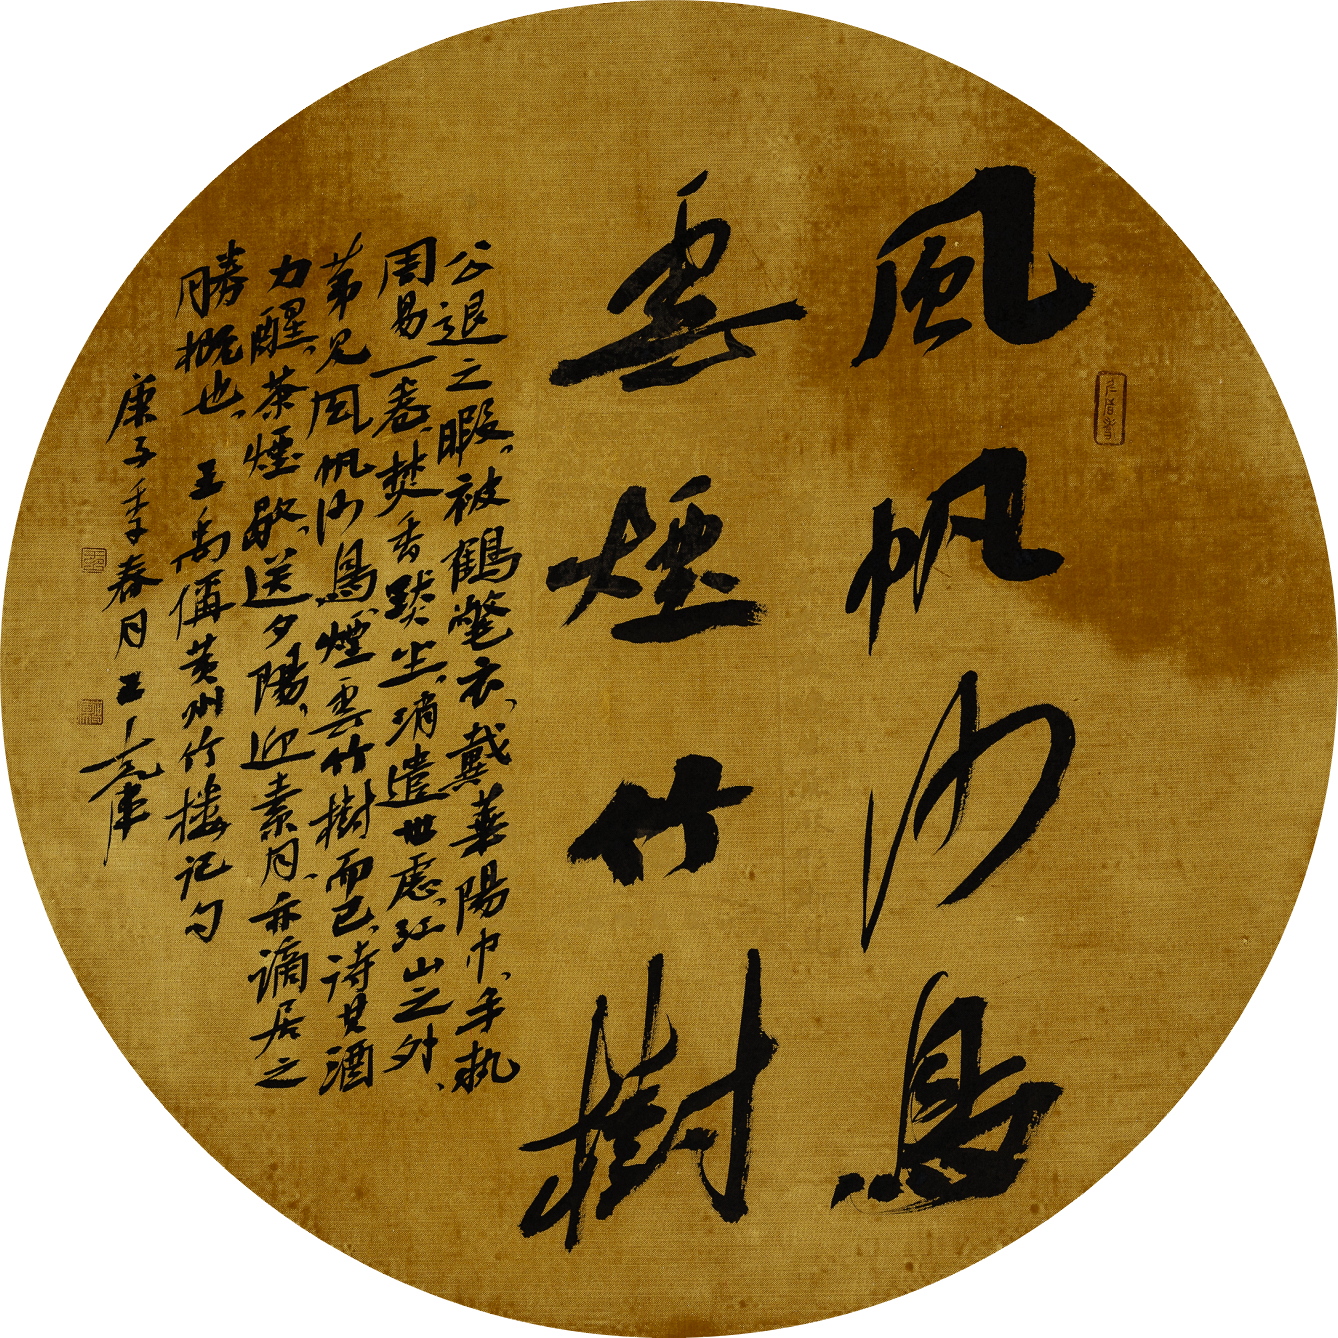 風帆沙鳥
雲煙竹樹
公退之暇、被鶴氅衣、戴華陽巾、手執
周易一卷、焚香默坐、消遣世慮、江山之外、
第見風帆沙鳥、煙雲竹樹而已、待其酒
力醒、茶煙歇、送夕陽、迎素月、亦謫居之
勝概也、王禹偁黄州竹楼记句
庚子季春月王